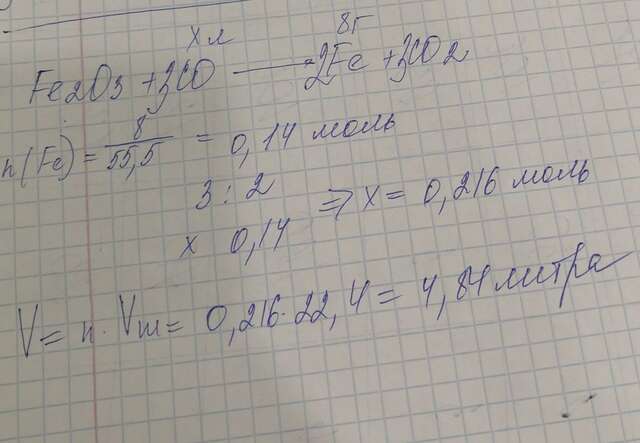 x л 8г
Fe2O3 + 3CO ⟶ 2Fe + 3CO2
n(Fe) = 8/55,5 = 0,14 моль
3 : 2
x 0,14 ⇒ x = 0,216 моль
V = n · Vm = 0,216 · 22,4 = 4,84 литра